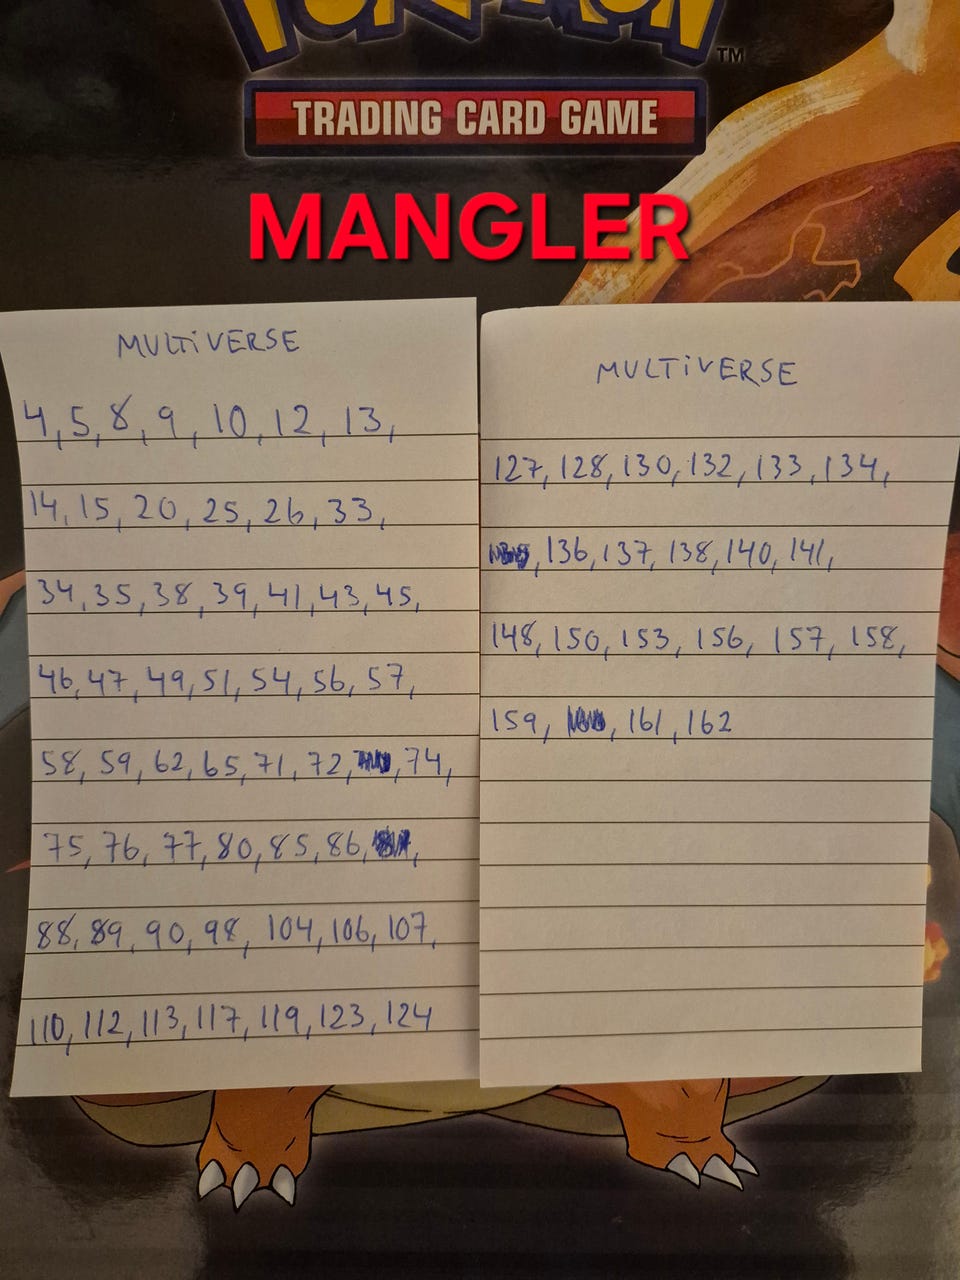 POKÉMON
TM
TRADING CARD GAME
MANGLER
MULTiVERSE
4, 5, 8, 9, 10, 12, 13,
14, 15, 20, 25, 26, 33,
34, 35, 38, 39, 41, 43, 45,
46, 47, 49, 51, 54, 56, 57,
58, 59, 62, 65, 71, 72, , 74,
75, 76, 77, 80, 85, 86, ,
88, 89, 90, 98, 104, 106, 107,
110, 112, 113, 117, 119, 123, 124
MULTiVERSE
127, 128, 130, 132, 133, 134,
, 136, 137, 138, 140, 141,
148, 150, 153, 156, 157, 158,
159, , 161, 162